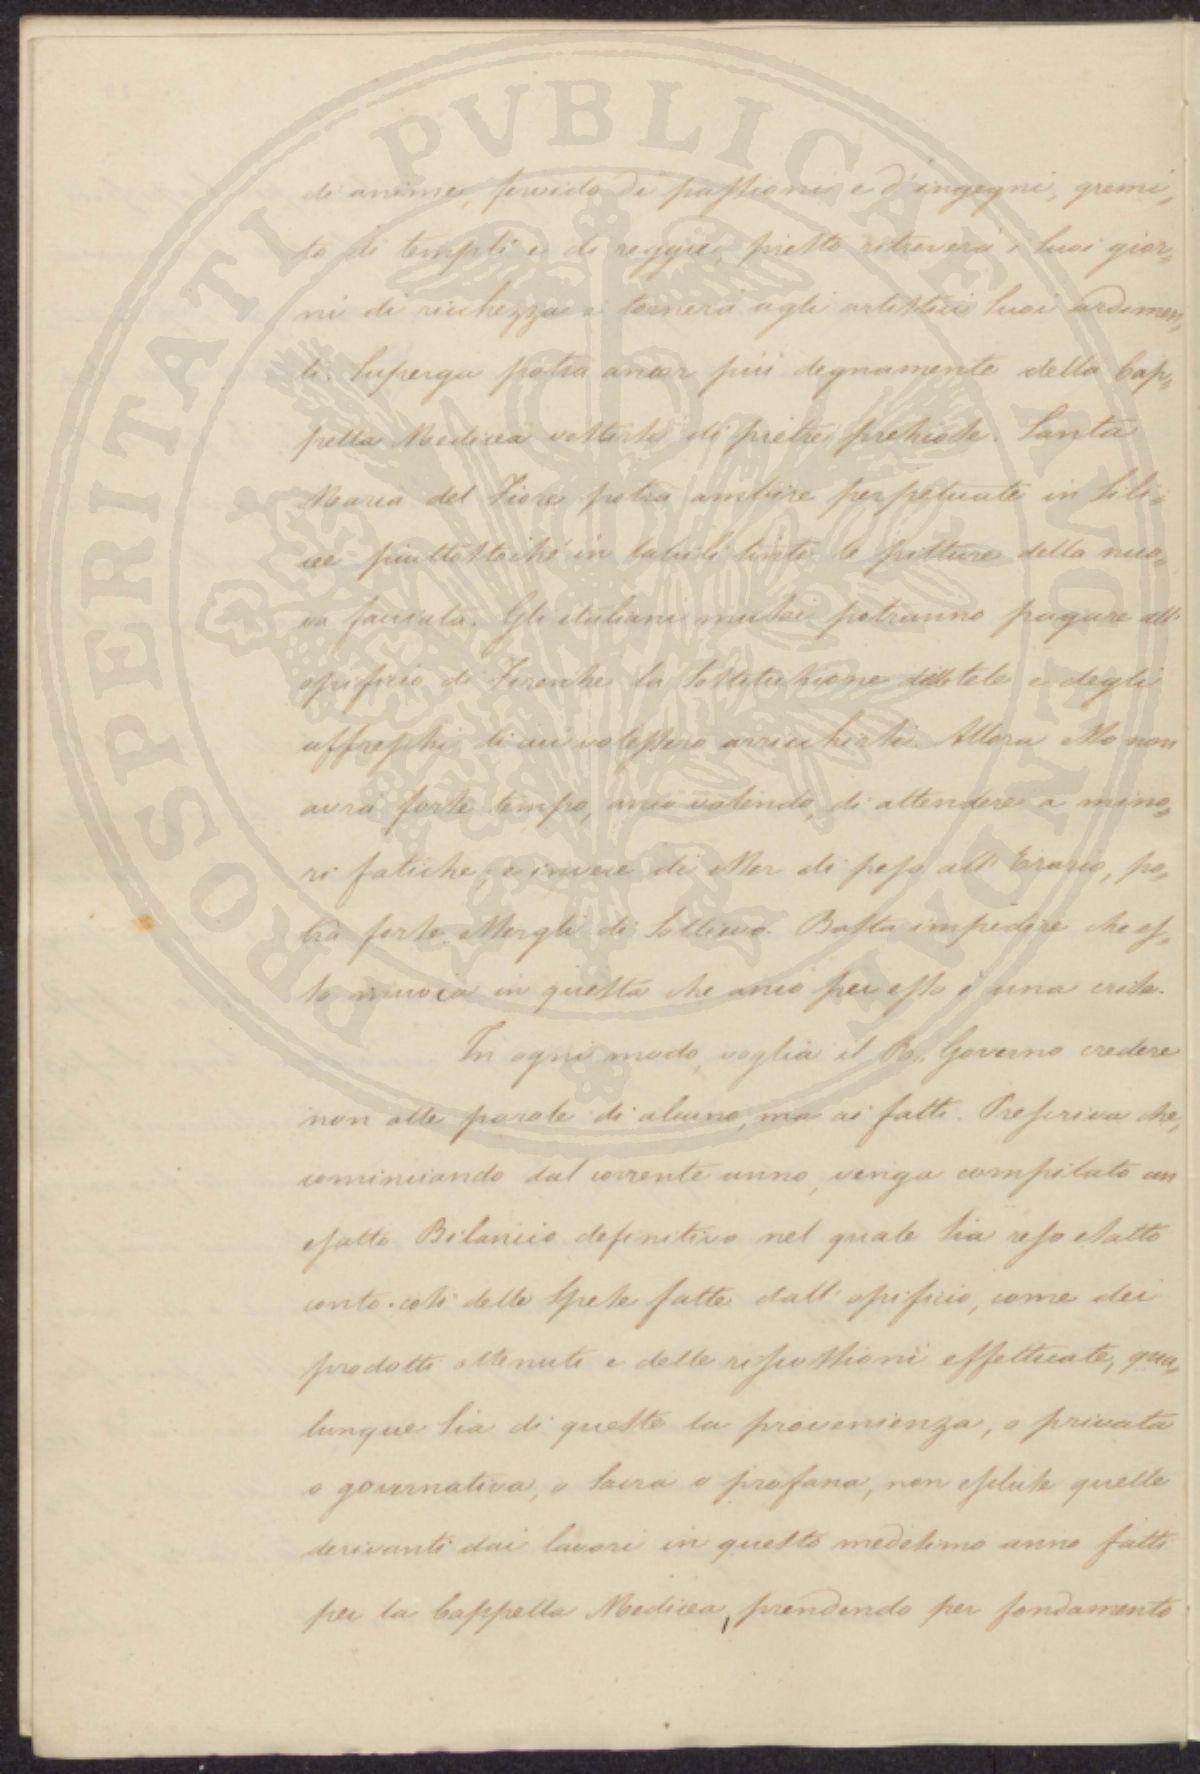 di anime, fervido di passioni e d'ingegni, gremi„
to di templi e di reggie, presto ritroverà i suoi gior„
ni di ricchezza e tornerà agli artistici suoi ardimen„
ti. Superga potrà ancor più degnamente della Cap„
pella Medicea vestirsi di pietre preziose. Santa
Maria del Fiore potrà ambire perpetuate in sili„
ce piuttostoché in labili tinte le pitture della nuo„
va facciata. Gli italiani musei potranno pagare all'
opificio di Firenze la sostituzione delle tele e degli
affreschi di cui volessero arricchirsi. Allora esso non
avrà forse tempo, anco volendo, di attendere a mino„
ri fatiche, e invece di esser di peso all'Erario, po„
trà forse essergli di sollievo. Basta impedire che es„
so muoia in questa che anco per esso è una crise.
In ogni modo, voglia il R. Governo credere
non alle parole di alcuno, ma ai fatti. Prescriva che,
cominciando dal corrente anno, venga compilato un
esatto Bilancio definitivo nel quale sia reso esatto
conto così delle spese fatte dall'opificio, come dei
prodotti ottenuti e delle riscossioni effettuate, qua„
lunque sia di queste la provenienza, o privata
o governativa, o sacra o profana, non escluse quelle
derivanti dai lavori in questo medesimo anno fatti
per la Cappella Medicea, prendendo per fondamento
PROSPERITATI PVBLICAE AVGENDAE